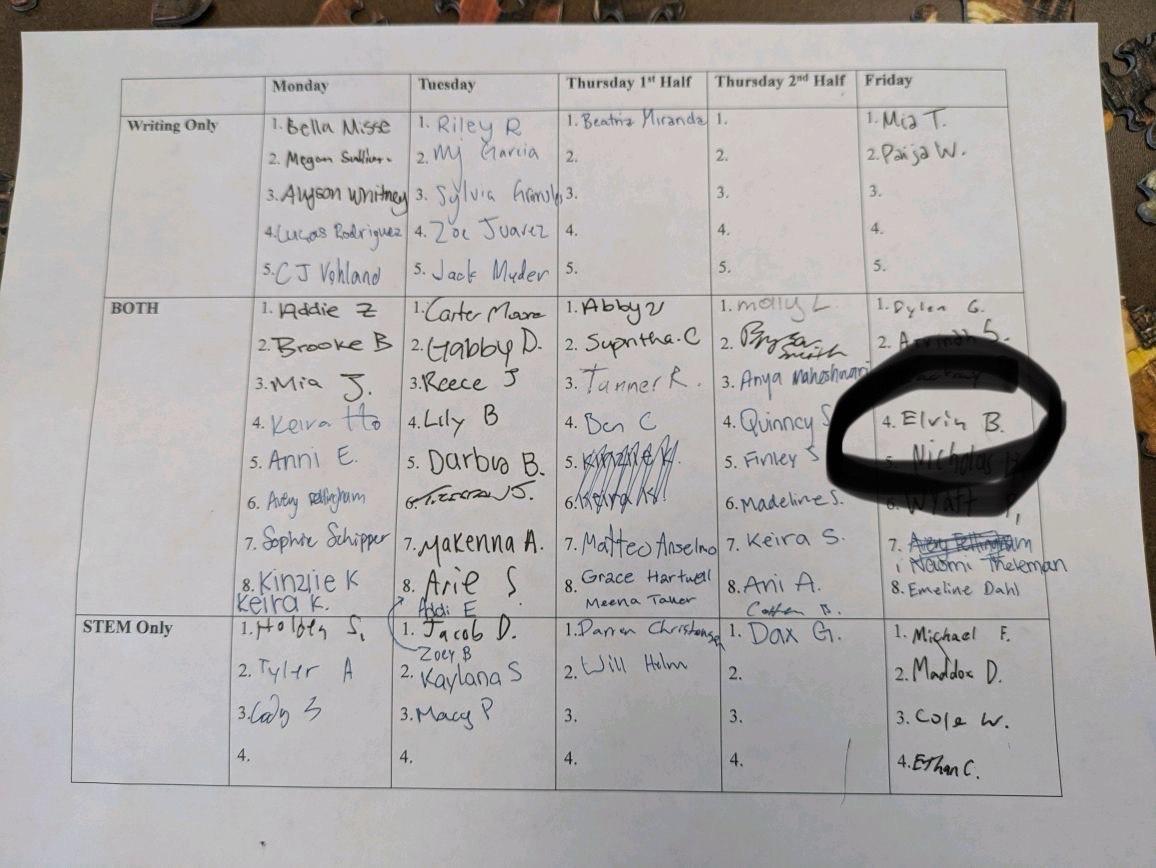 Monday Tuesday Thursday 1st Half Thursday 2nd Half Friday
Writing Only 1. Bella Misse 1. Riley R 1. Beatriz Miranda 1. 1. Mia T.
2. Megan 2. My Garcia 2. 2. 2. Paija W.
3. Alyson Whitney 3. Sylvia 3. 3. 3.
4. Lucas Rodriguez 4. Zoe Juarez 4. 4. 4.
5. CJ Vohland 5. Jack Myder 5. 5. 5.
BOTH 1. Addie Z 1. Carter Moore 1. Abby V 1. Molly L. 1. Dylan G.
2. Brooke B 2. Gabby D. 2. Supritha. C 2. Smith 2. S.
3. Mia J. 3. Reece J 3. Tanner R. 3. Anya Maheshwari
4. Keira Ho 4. Lily B 4. Ben C 4. Quinncy S 4. Elvin B.
5. Anni E. 5. Darbya B. 5. Kinzlie K. 5. Finley S 5. Nicholas H
6. Avery Pellingham 6. J. 6. Keira K. 6. Madeline S. 6. Wyatt P.
7. Sophie Schipper 7. Makenna A. 7. Matteo Anselmo 7. Keira S. 7. Avery Pellingham
Naomi Theleman
8. Kinzlie K 8. Arie S 8. Grace Hartwell 8. Ani A. 8. Emeline Dahl
Keira K. Addi E Meena Tauer B.
STEM Only 1. Holden S. 1. Jacob D. 1. Darren Christensen 1. Dax G. 1. Michael F.
Zoey B
2. Tyler A 2. Kaylana S 2. Will Holm 2. 2. Maddox D.
3. Cody S 3. Macy P 3. 3. 3. Cole W.
4. 4. 4. 4. 4. Ethan C.